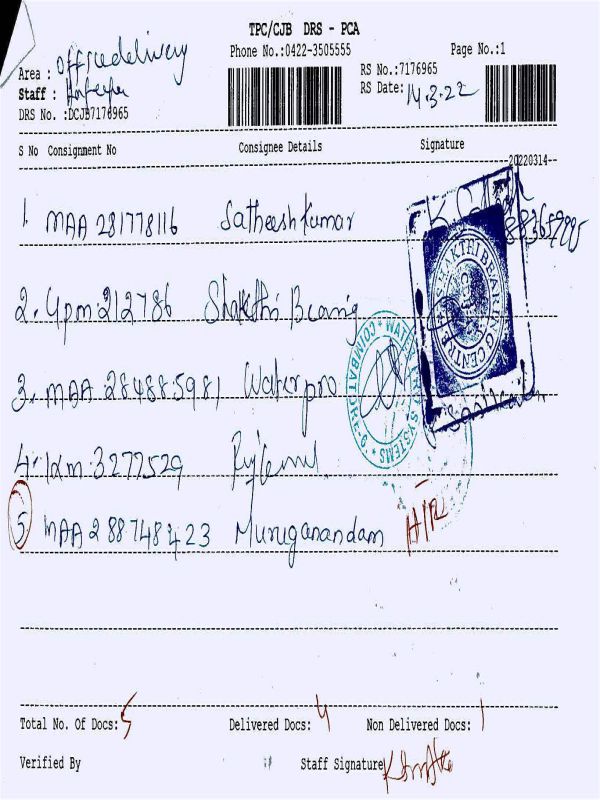 TPC/CJB DRS - PCA
Phone No.:0422-3505555
Page No.:1
Area : Officedelivery
RS No.:7176965
Staff :
RS Date: 14.3.22
DRS No. :DCJB7176965
S No Consignment No Consignee Details Signature
20220314
1. MAA 281778116 Satheesh Kumar
2. 4pm:212786 Shakthi Bearing
3. MAA:284885981 Waterpro
4. 3277529
5 MAA 288748423 Muruganandam H/R
SAKTHI BEARING CENTRE
COIMBATORE SYSTEMS
Total No. Of Docs: 5 Delivered Docs: 4 Non Delivered Docs: 1
Verified By Staff Signature